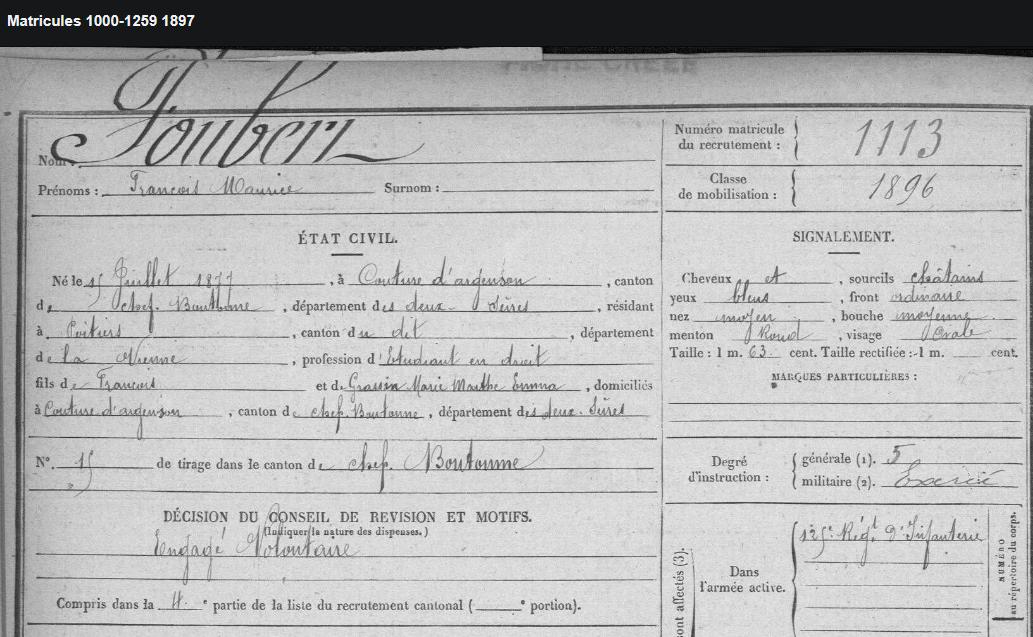 Matricules 1000-1259 1897
Nom :
Prénoms : François Maurice Surnom :
Numéro matricule du recrutement : 1113
Classe de mobilisation : 1896
ÉTAT CIVIL.
Né le 15 Juillet 1877, à Couture d'argenson, canton
de chef. Boutonne, département des deux-Sèvres, résidant
à Poitiers, canton du dit, département
de la Vienne, profession d'Etudiant en droit
fils de François et de Grassin Marie Marthe Emma, domiciliés
à Couture d'argenson, canton de chef. Boutonne, département des deux. Sèvres
N°. 15 de tirage dans le canton de chef. Boutonne
DÉCISION DU CONSEIL DE REVISION ET MOTIFS.
(Indiquer la nature des dispenses.)
Engagé Volontaire
Compris dans la 4 e partie de la liste du recrutement cantonal ( e portion).
SIGNALEMENT.
Cheveux et, sourcils châtains
yeux bleus, front ordinaire
nez moyen, bouche moyenne
menton Rond, visage Ovale
Taille : 1 m. 63 cent. Taille rectifiée : 1 m. cent.
MARQUES PARTICULIÈRES :
Degré d'instruction :
générale (1). 5
militaire (2). Exercé
sont affectés (3).
Dans l'armée active.
125e Régt d'Infanterie
NUMÉRO
au répertoire du corps.